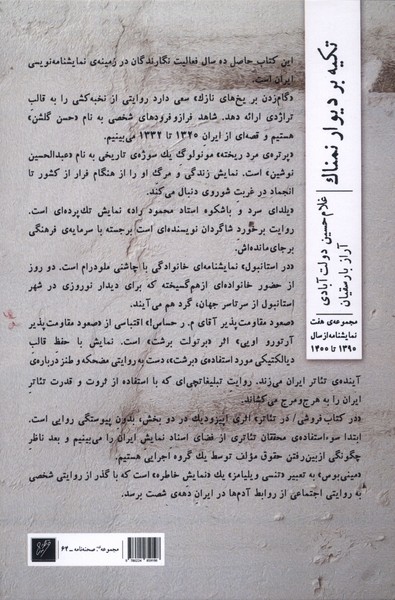 تکیه بر دیوار نمناک
غلامحسین دولت‌آبادی
آراز بارسقیان
مجموعه‌ی هفت
نمایشنامه از سال
۱۳۹۰ تا ۱۴۰۰
این کتاب حاصل ده سال فعالیت نگارندگان در زمینه‌ی نمایشنامه‌نویسی
ایران است.
«گام‌زدن بر یخ‌های نازک» سعی دارد روایتی از نخبه‌کشی را به قالب
تراژدی ارائه دهد. شاهد فرازوفرودهای شخصی به نام «حسن گلشن»
هستیم و قصه‌ای از ایرانِ ۱۳۲۰ تا ۱۳۳۲ می‌بینیم.
«پرتره‌ی مرد ریخته» مونولوگِ یک سوژه‌ی تاریخی به نام «عبدالحسین
نوشین» است. نمایش زندگی و مرگ او را از هنگام فرار از کشور تا
انجماد در غربت شوروی دنبال می‌کند.
«یلدای سرد و باشکوه استاد محمود راد» نمایش تک‌پرده‌ای است.
روایت برخورد شاگردان نویسنده‌ای است برجسته با سرمایه‌ی فرهنگی
برجای‌مانده‌اش.
«در استانبول» نمایشنامه‌ای خانوادگی با چاشنی ملودرام است. دو روز
از حضور خانواده‌ای ازهم‌گسیخته که برای دیدار نوروزی در شهر
استانبول از سرتاسر جهان گرد هم می‌آیند.
«صعود مقاومت‌پذیر آقای م. ر حساس!» اقتباسی از «صعود مقاومت‌پذیر
آرتورو اویی» اثر «برتولت برشت» است. نمایش با حفظ قالبِ
دیالکتیکی مورد استفاده‌ی «برشت» دست به روایتی مضحکه و طنز درباره‌ی
آینده‌ی تئاتر ایران می‌زند. روایت تبلیغاتچی‌ای که با استفاده از ثروت و قدرت تئاترِ
ایران را به هرج‌ومرج می‌کشاند.
«در کتاب‌فروشی / در تئاتر» اثری اپیزودیک در دو بخش، بدون پیوستگی روایی است.
ابتدا سوءاستفاده‌ی محققان تئاتری از فضای اسناد نمایش ایران را می‌بینیم و بعد ناظرِ
چگونگی ازبین‌رفتن حقوق مؤلف توسط یک گروه اجرایی هستیم.
«مینی‌بوس» به تعبیر «تنسی ویلیامز» یک «نمایش خاطره» است که با گذر از روایتی شخصی
به روایتی اجتماعی از روابط آدم‌ها در ایران دهه‌ی شصت برسد.
مجموعه: صحنه‌نامه - ۶۲